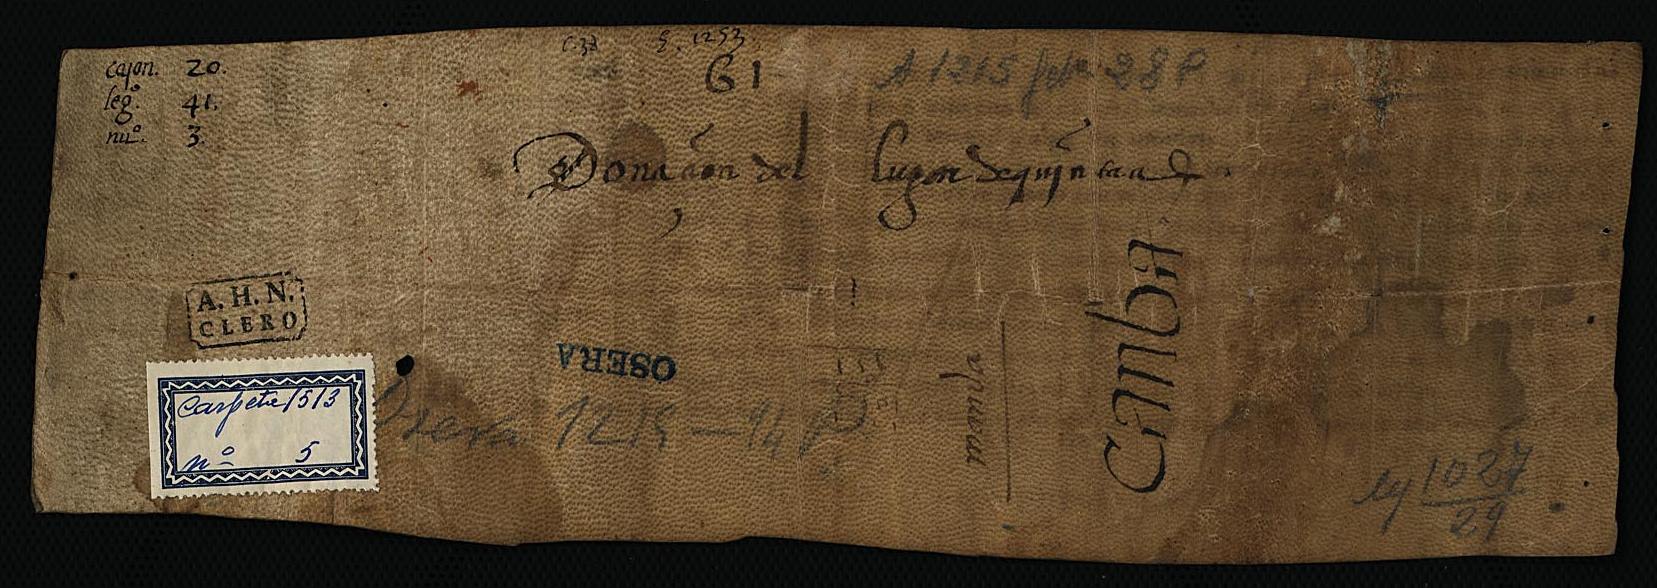 cajon. 20.
leg.º 41.
nu.º 3.
E. 1253
61
A 1215 28 P
Donaçion del lugar de quintaa
A. H. N.
CLERO
OSERA
Carpeta 1513
nº 5
Osera 1215 — P
Camba
leg 1027
29